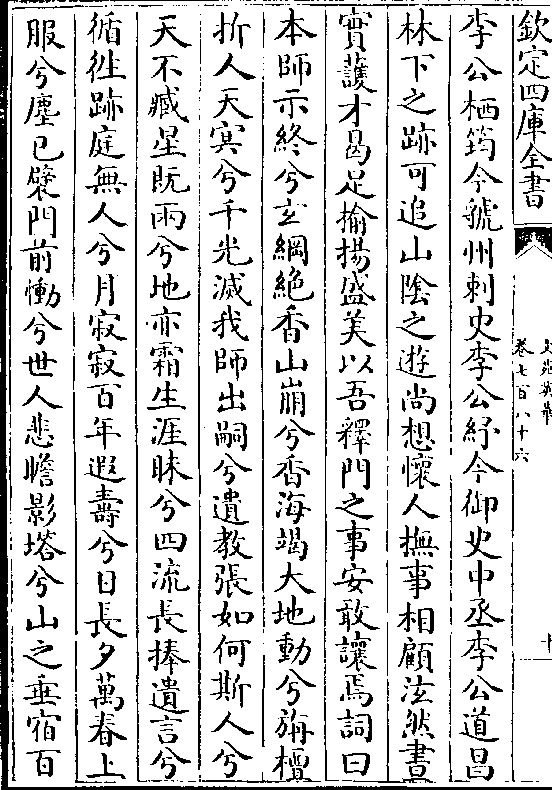 欽定四庫全書
卷七百八十六
李公栖筠今虢州刺史李公紓今御史中丞李公道昌
林下之跡可追山陰之遊尚想懷人撫事相顧泫然晝
實䕶才曷足揄揚盛美以吾釋門之事安敢讓焉詞曰
本師示終兮玄綱絶香山崩兮香海竭大地動兮旃檀
折人天㝠兮千光滅我師出嗣兮遺教張如何斯人兮
天不臧星既雨兮地亦霜生涯昧兮四流長捧遺言兮
循徃跡庭無人兮月寂寂百年遐壽兮日長夕萬春上
服兮塵已襞門前慟兮世人悲瞻影塔兮山之垂宿百